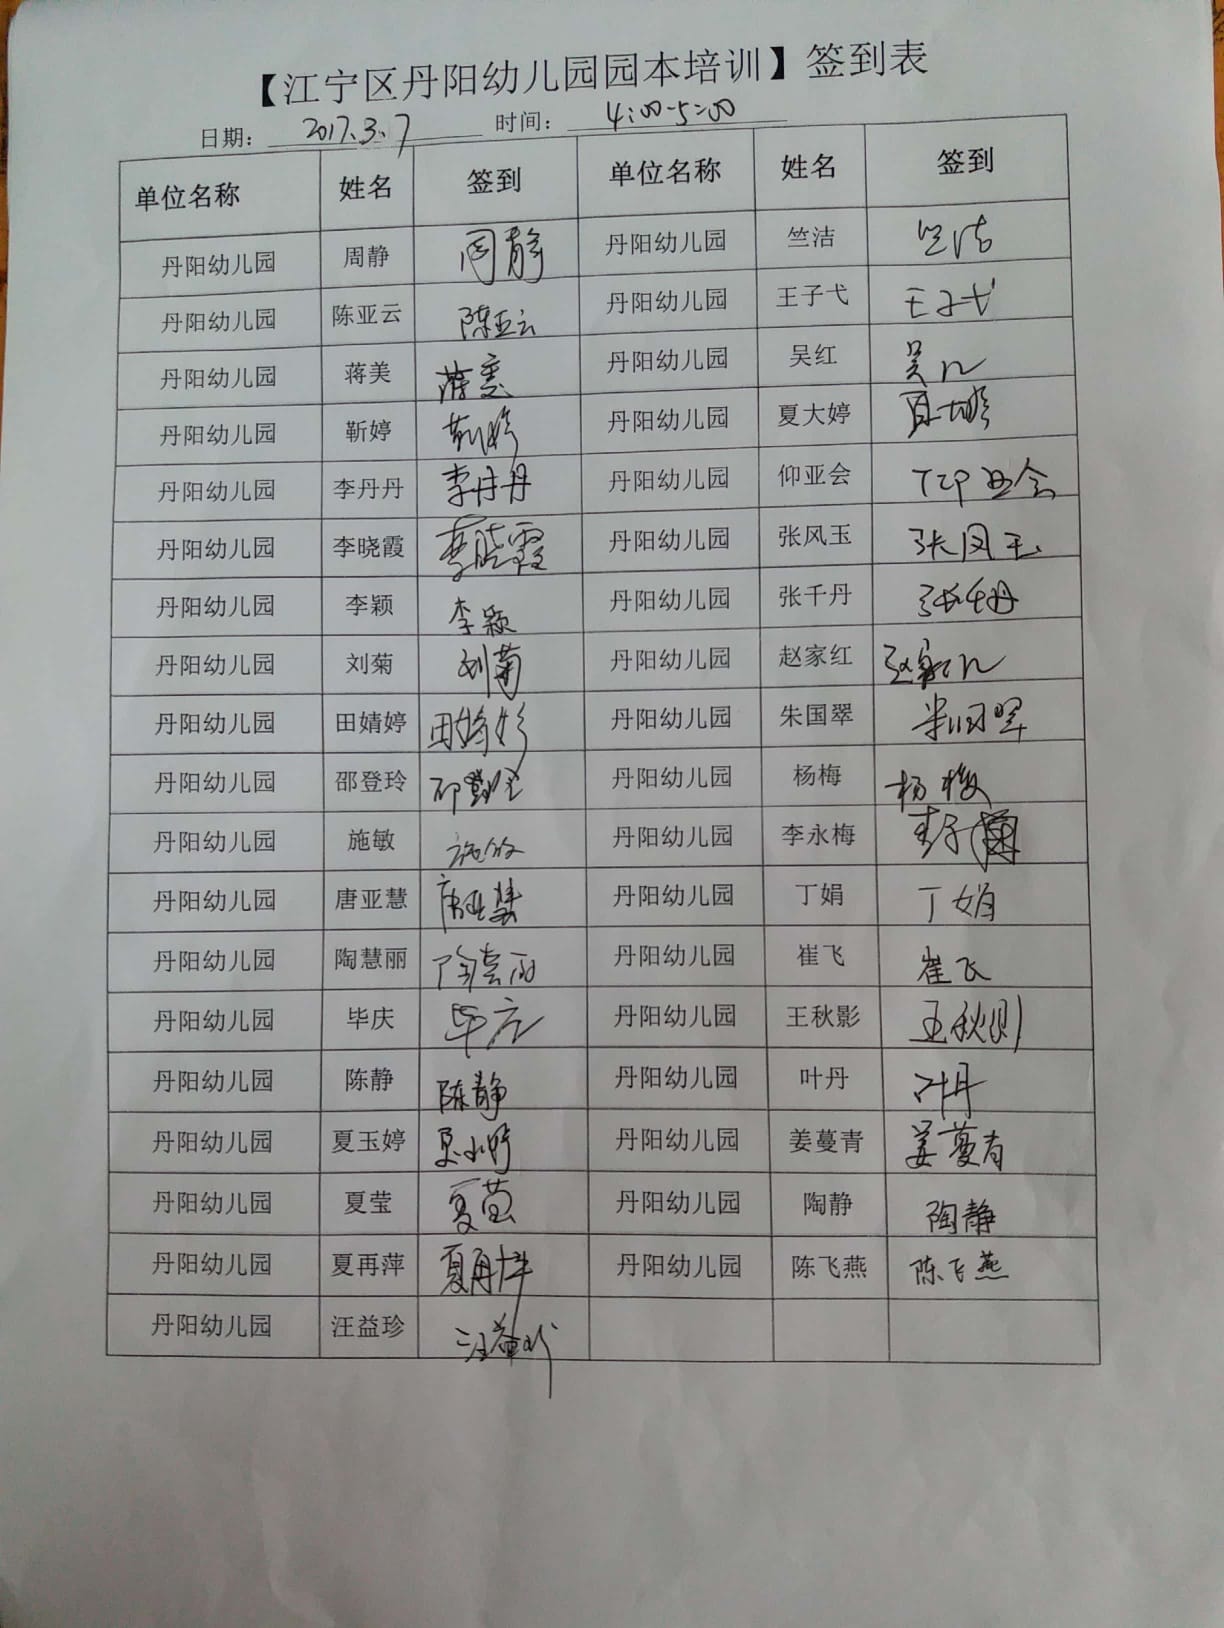 【江宁区丹阳幼儿园园本培训】签到表
日期： 2017.3.7 时间： 4:00-5:00
单位名称 姓名 签到 单位名称 姓名 签到
丹阳幼儿园 周静 周静 丹阳幼儿园 竺洁 竺洁
丹阳幼儿园 陈亚云 陈亚云 丹阳幼儿园 王子弋 王子弋
丹阳幼儿园 蒋美 丹阳幼儿园 吴红 吴红
丹阳幼儿园 靳婷 靳婷 丹阳幼儿园 夏大婷 夏大婷
丹阳幼儿园 李丹丹 李丹丹 丹阳幼儿园 仰亚会 仰亚会
丹阳幼儿园 李晓霞 李晓霞 丹阳幼儿园 张风玉 张凤玉
丹阳幼儿园 李颖 李颖 丹阳幼儿园 张千丹 张千丹
丹阳幼儿园 刘菊 刘菊 丹阳幼儿园 赵家红 赵家红
丹阳幼儿园 田婧婷 田婧婷 丹阳幼儿园 朱国翠 朱国翠
丹阳幼儿园 邵登玲 邵登玲 丹阳幼儿园 杨梅 杨梅
丹阳幼儿园 施敏 施敏 丹阳幼儿园 李永梅
丹阳幼儿园 唐亚慧 唐亚慧 丹阳幼儿园 丁娟 丁娟
丹阳幼儿园 陶慧丽 陶慧丽 丹阳幼儿园 崔飞 崔飞
丹阳幼儿园 毕庆 毕庆 丹阳幼儿园 王秋影 王秋影
丹阳幼儿园 陈静 陈静 丹阳幼儿园 叶丹 叶丹
丹阳幼儿园 夏玉婷 夏玉婷 丹阳幼儿园 姜蔓青 姜蔓青
丹阳幼儿园 夏莹 夏莹 丹阳幼儿园 陶静 陶静
丹阳幼儿园 夏再萍 夏再萍 丹阳幼儿园 陈飞燕 陈飞燕
丹阳幼儿园 汪益珍 汪益珍